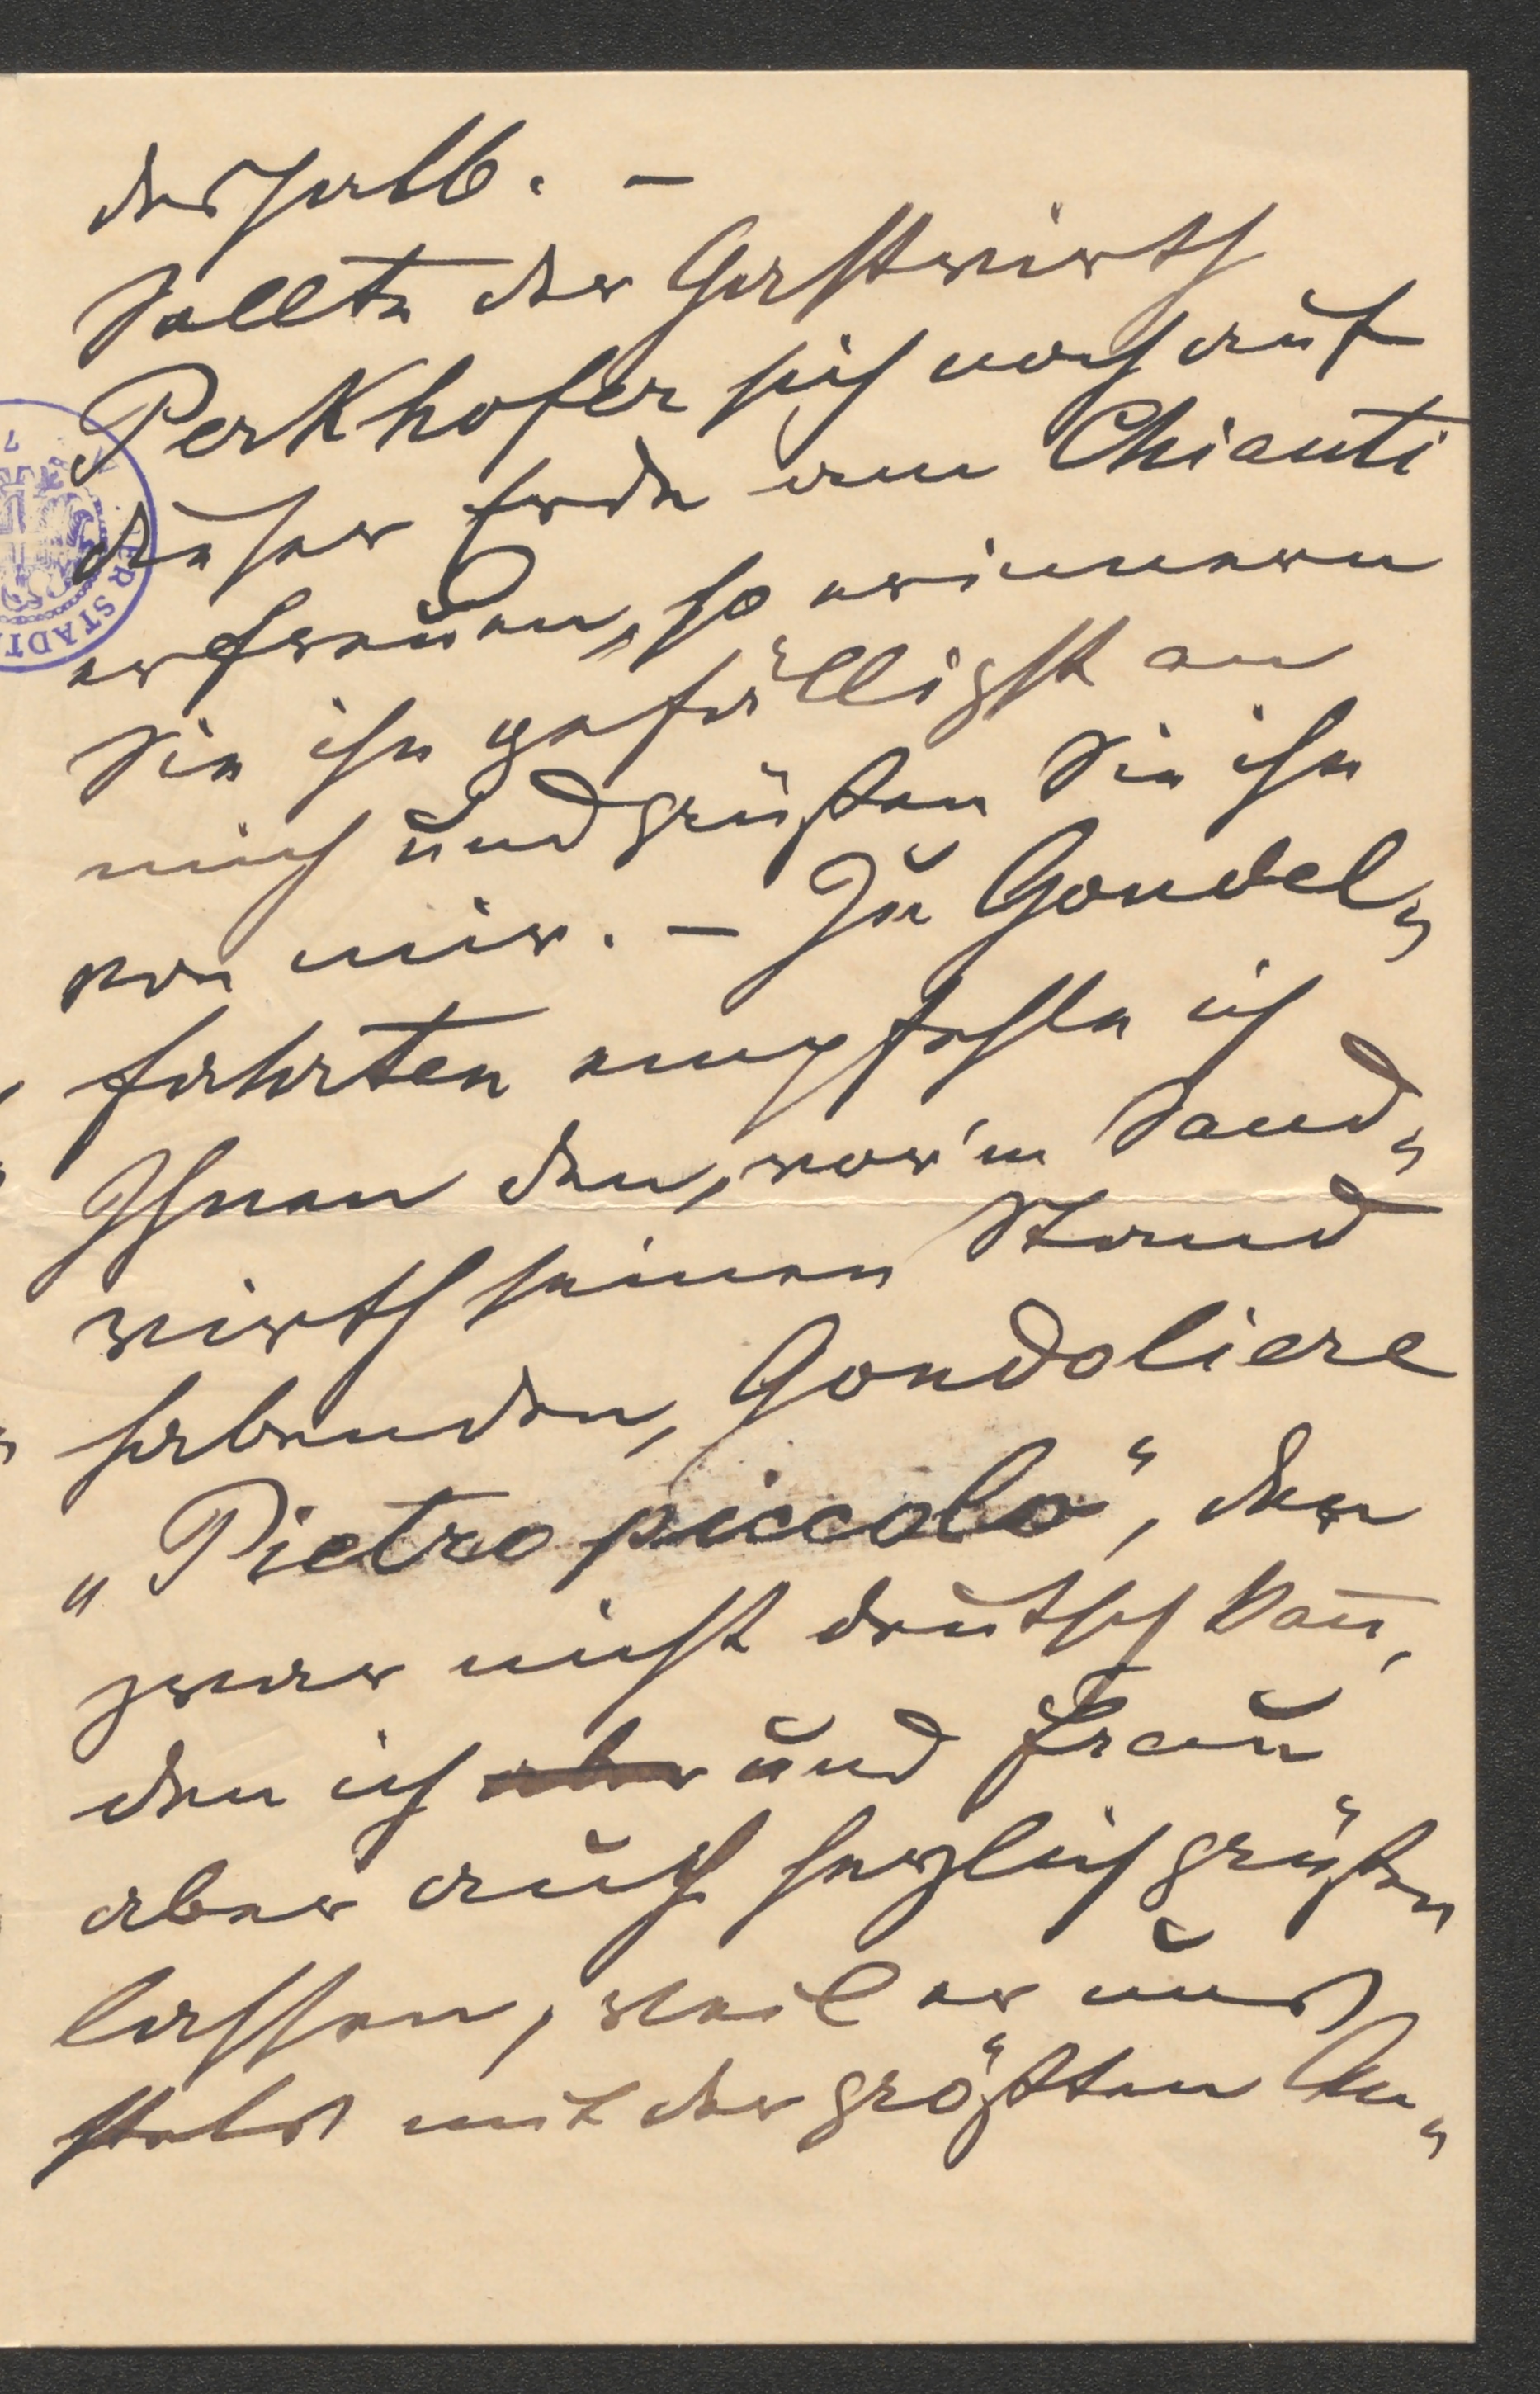 deshalb. –
Sollte der Gastwirth
Perkhofer sich noch auf
dieser Erde am Chianti
erfreuen, so erinnern
Sie ihn gefälligst an
mich und grüßen Sie ihn
von mir. – Zu Gondel„
fahrten empfehle ich
Ihnen den, vor'm Sand„
wirth seinen Stand
habenden, Gondoliere
„Pietro piccolo“, der
zwar nicht deutsch kan̄,
den ich aber und Frau
aber auch herzlich grüßen
lassen, weil er uns
stets mit der größten An„
ER STADT